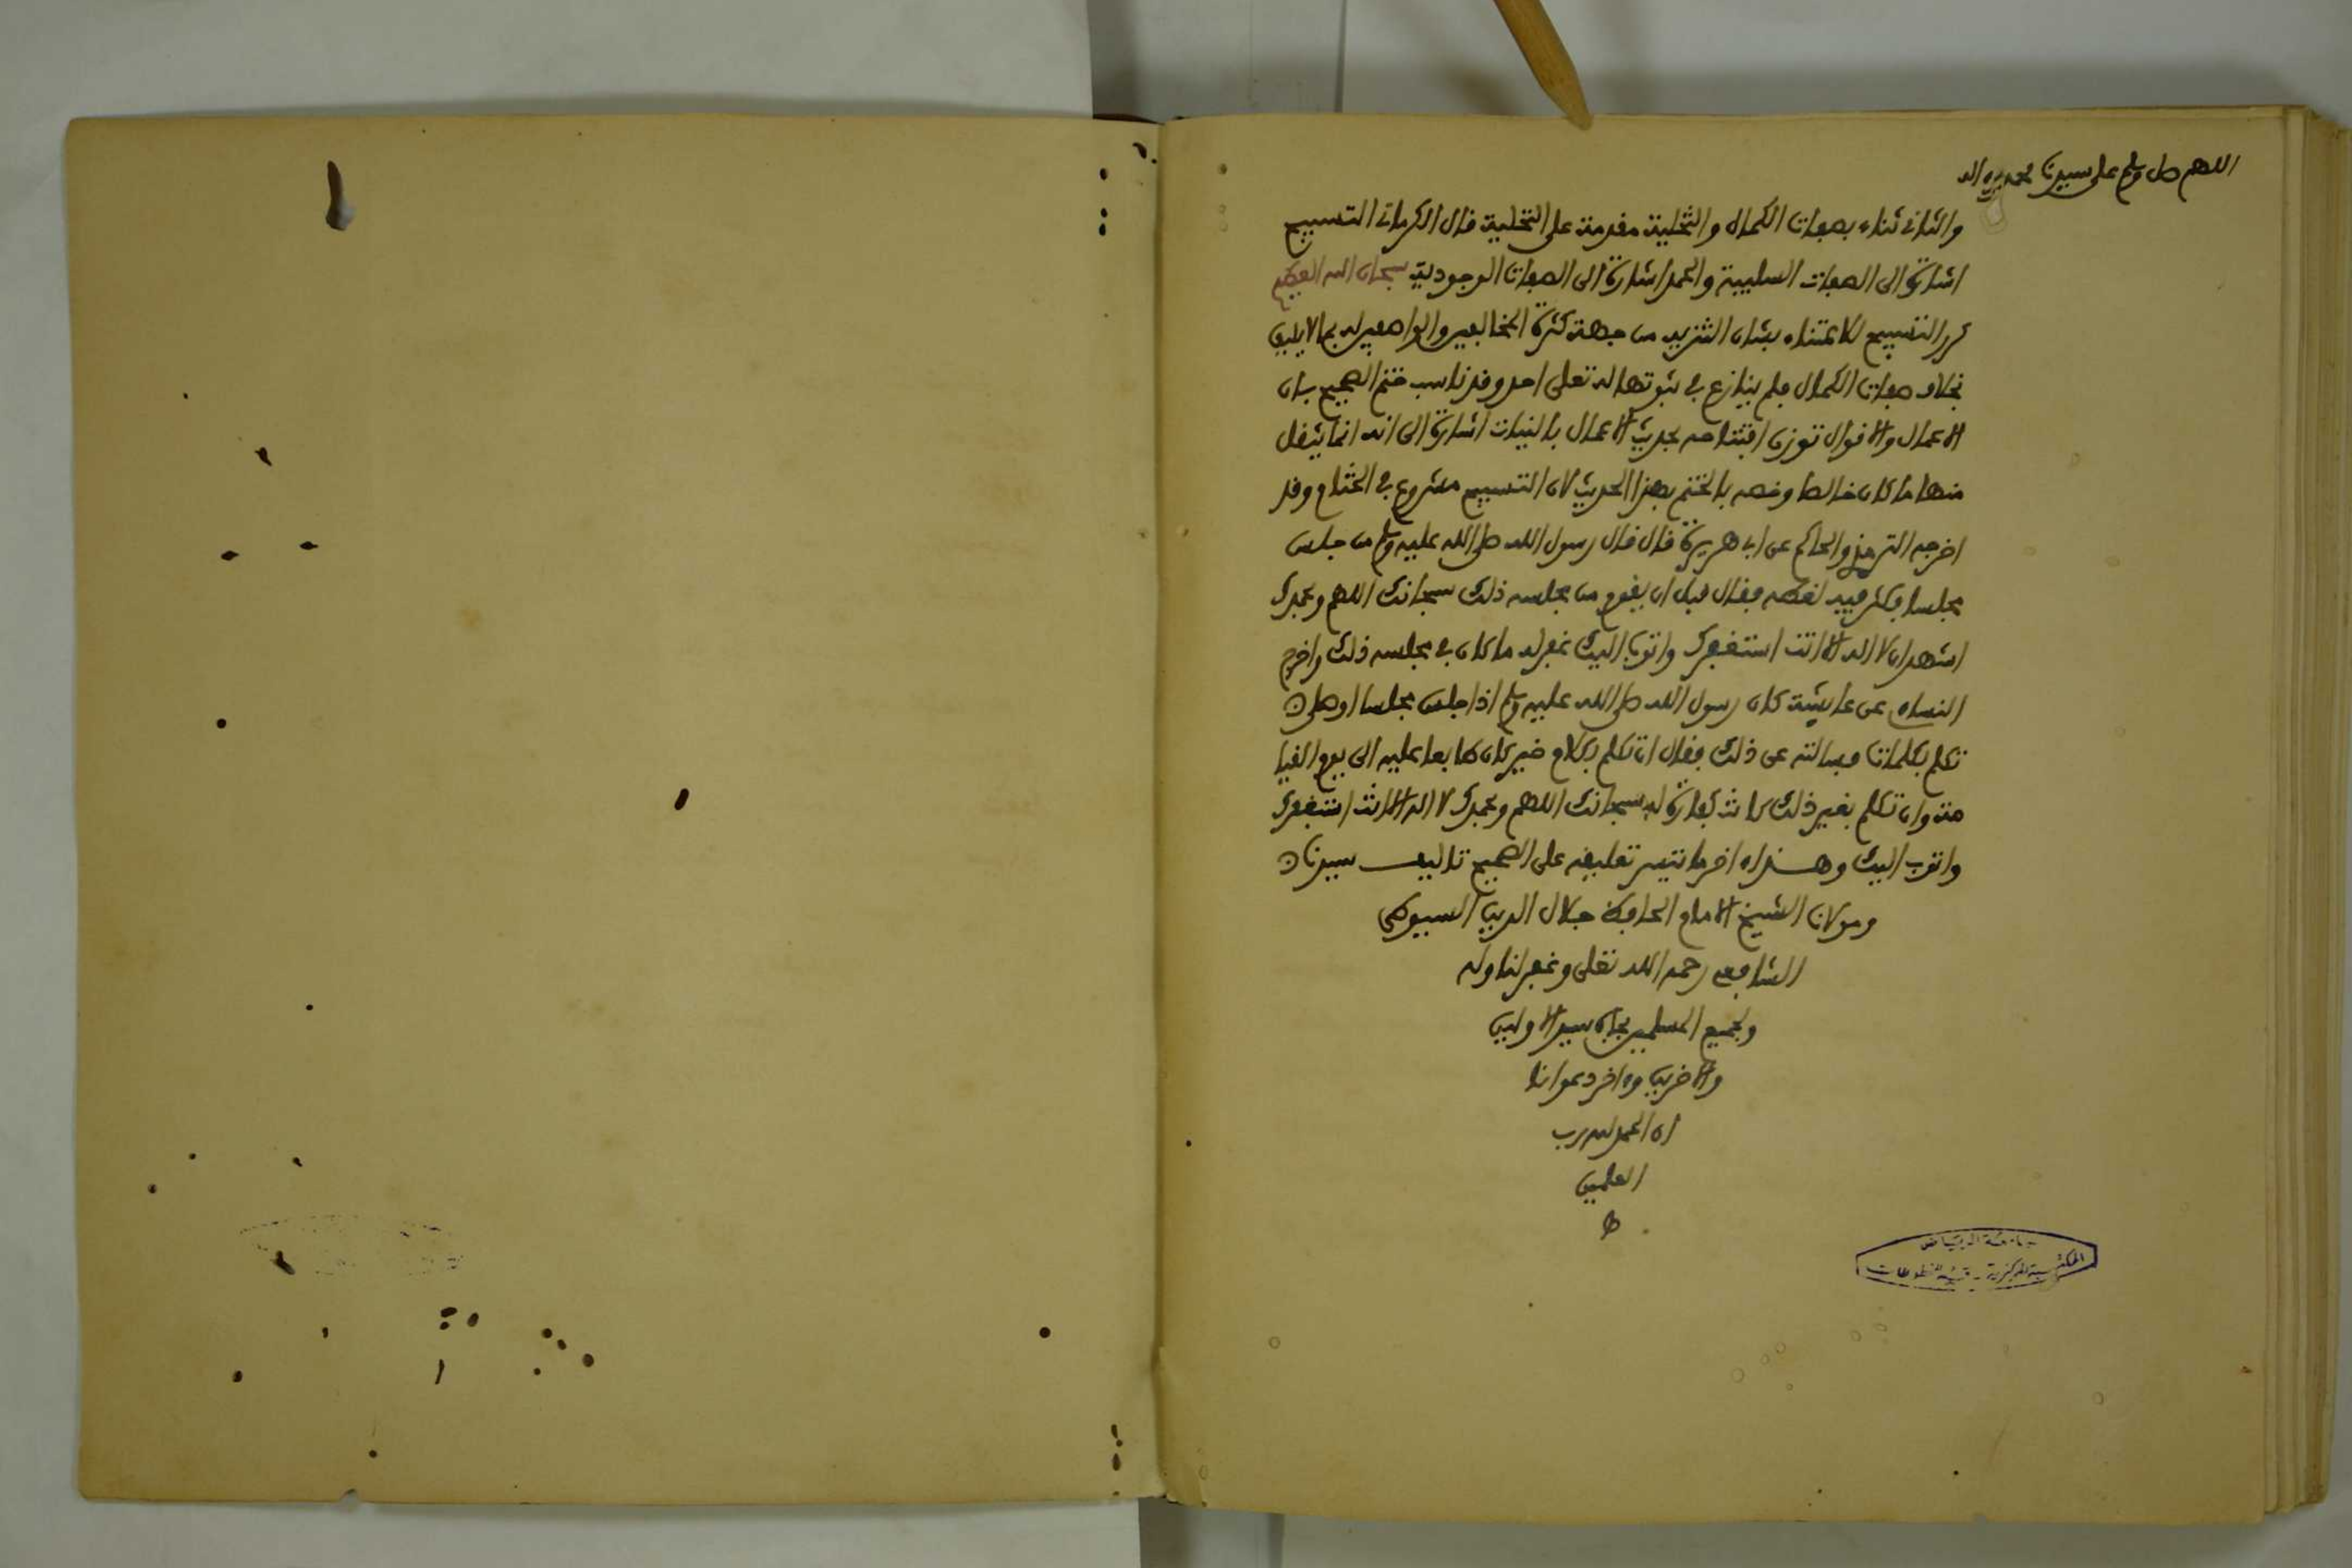 اللهم صل وسلم على سيدنا محمد واله
والثانى ثناء بصفات الكمال والتخلية مقدمة على التحلية قال الكرمانى التسبيح
اشارة الى الصفات السلبية والحمد اشارة الى الصفات الوجودية سبحان الله العظيم
كرر التسبيح للاعتناء بشان التنزيه من جهة كثرة المخالفين والواصفين له بما لا يليق
بخلاف صفات الكمال فلم ينازع فى ثبوتها له تعلى احد وقد ناسب ختم الصحيح بان
الاعمال والاقوال توزن افتتاحه بحديث الاعمال بالنيات اشارة الى انه انما يثقل
منها ما كان خالصا وخصه بالختم بهذا الحديث لان التسبيح مشروع فى الختام وقد
اخرج الترمذى والحاكم عن ابى هريرة قال قال رسول الله صلى الله عليه وسلم من جلس
مجلسا فكثر فيه لغطه فقال قبل ان يقوم من مجلسه ذلك سبحانك اللهم وبحمدك
اشهد ان لا اله الا انت استغفرك واتوب اليك غفر له ما كان فى مجلسه ذلك واخرج
النساءى عن عايشة كان رسول الله صلى الله عليه وسلم اذا جلس مجلسا او صلى
تكلم بكلمات فسالته عن ذلك فقال ان تكلم بكلام خير كان طابعا عليه الى يوم القيا
مة وان تكلم بغير ذلك كانت كفارة له سبحانك اللهم وبحمدك لا اله الا انت استغفرك
واتوب اليك وهذا ءاخر ما تيسر تعليقه على الصحيح تاليف سيدنا
ومولانا الشيخ الامام الحافظ جلال الدين السيوطى
الشافعى رحمه الله تعلى وغفر لنا وله
ولجميع المسلمين بجاه سيد الاولين
والاخرين وءاخر دعوانا
ان الحمد لله رب
العلمين
ط
جامعة الرياض
المكتبة المركزية - قسم المخطوطات